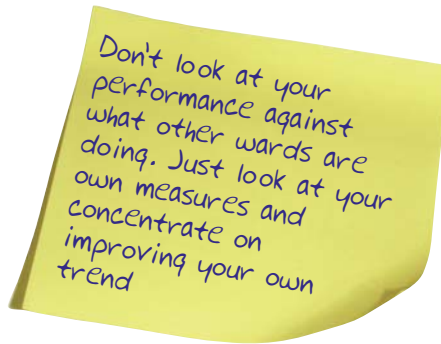 Don't look at your
performance against
what other wards are
doing. Just look at your
own measures and
concentrate on
improving your own
trend